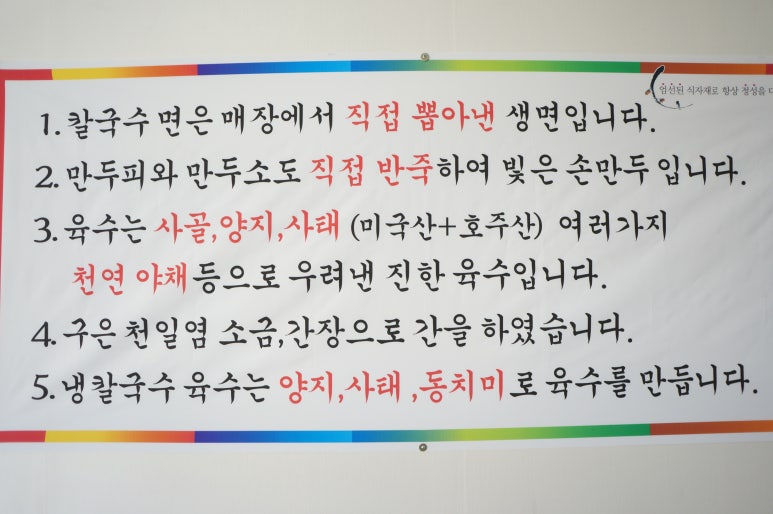 엄선된 식자재로 항상 정성을
1. 칼국수 면은 매장에서 직접 뽑아낸 생면입니다.
2. 만두피와 만두소도 직접 반죽하여 빚은 손만두 입니다.
3. 육수는 사골,양지,사태 (미국산+호주산) 여러가지
천연 야채 등으로 우려낸 진한 육수입니다.
4. 구은 천일염 소금,간장으로 간을 하였습니다.
5. 냉칼국수 육수는 양지,사태 ,동치미로 육수를 만듭니다.